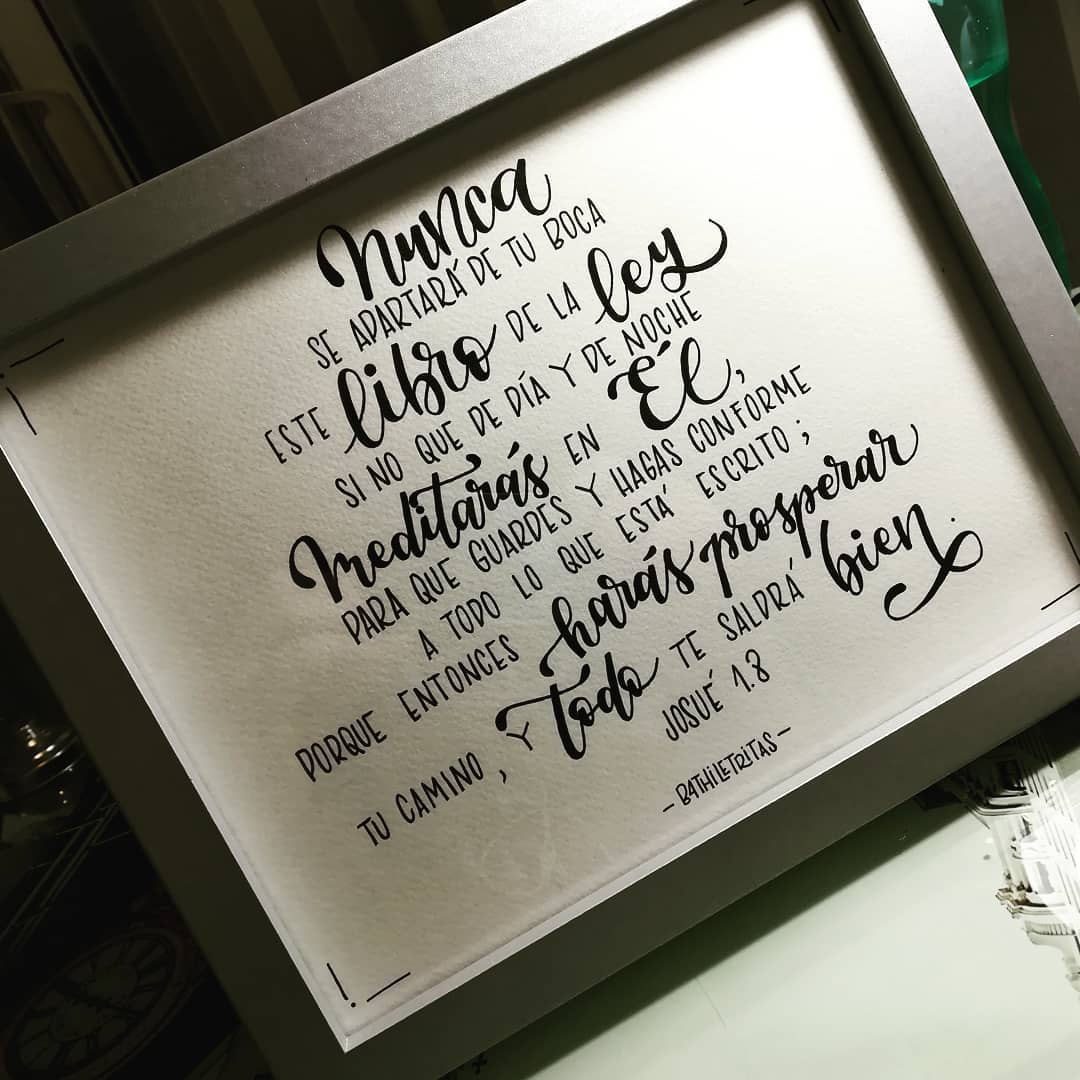 Nunca
SE APARTARÁ DE TU BOCA
ESTE libro DE LA ley
SI NO QUE DE DÍA Y DE NOCHE
Meditarás EN Él,
PARA QUE GUARDES Y HAGAS CONFORME
A TODO LO QUE ESTÁ ESCRITO;
PORQUE ENTONCES harás prosperar
TU CAMINO, Y todo TE SALDRÁ bien.
JOSUÉ 1.8
- B4THILETRITAS -